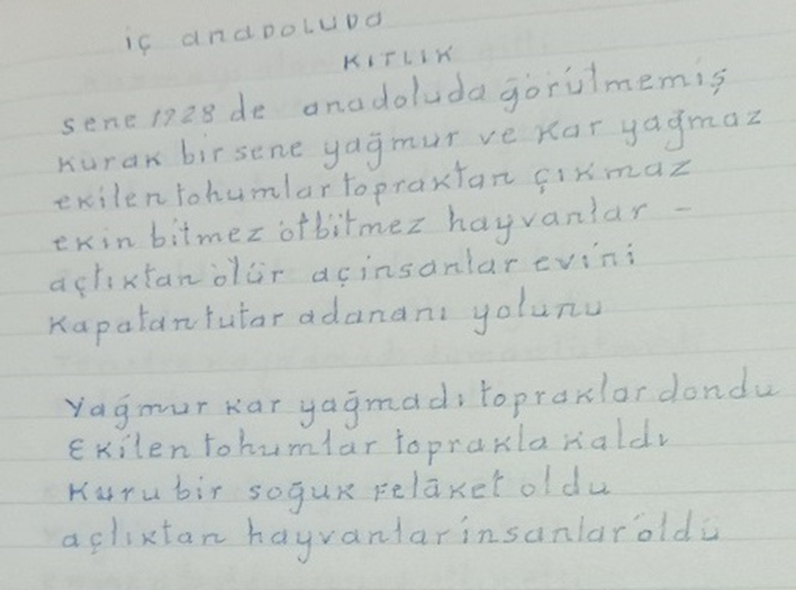 iç anadoluda
KITLIK
sene 1928 de anadoluda görülmemiş
kurak bir sene yağmur ve kar yağmaz
ekilen tohumlar topraktan çıkmaz
ekin bitmez ot bitmez hayvanlar -
açlıktan ölür aç insanlar evini
kapatan tutar adananı yolunu
Yağmur kar yağmadı topraklar dondu
Ekilen tohumlar toprakla kaldı
Kuru bir soğuk felâket oldu
açlıktan hayvanlar insanlar öldü